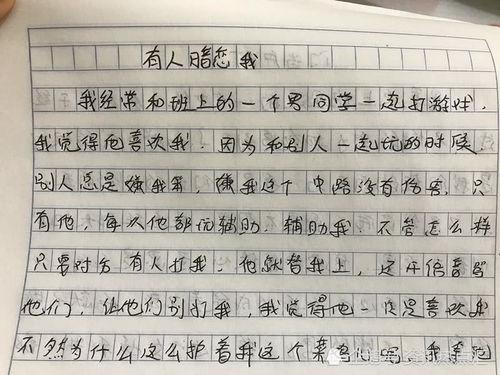 有人暗恋我
我经常和班上的一个男同学一起打游戏.
我觉得他喜欢我.因为和别人一起玩的时候
别人总是嫌我菜,嫌我这个中路没有伤害.只
有他,每次他都玩辅助.辅助我.不管怎么样
只要对方有人打我.他就替我上,还开倍音骂
他们,让他们别打我,我觉得他一定是喜欢我
不然为什么这么护着我这个菜鸡